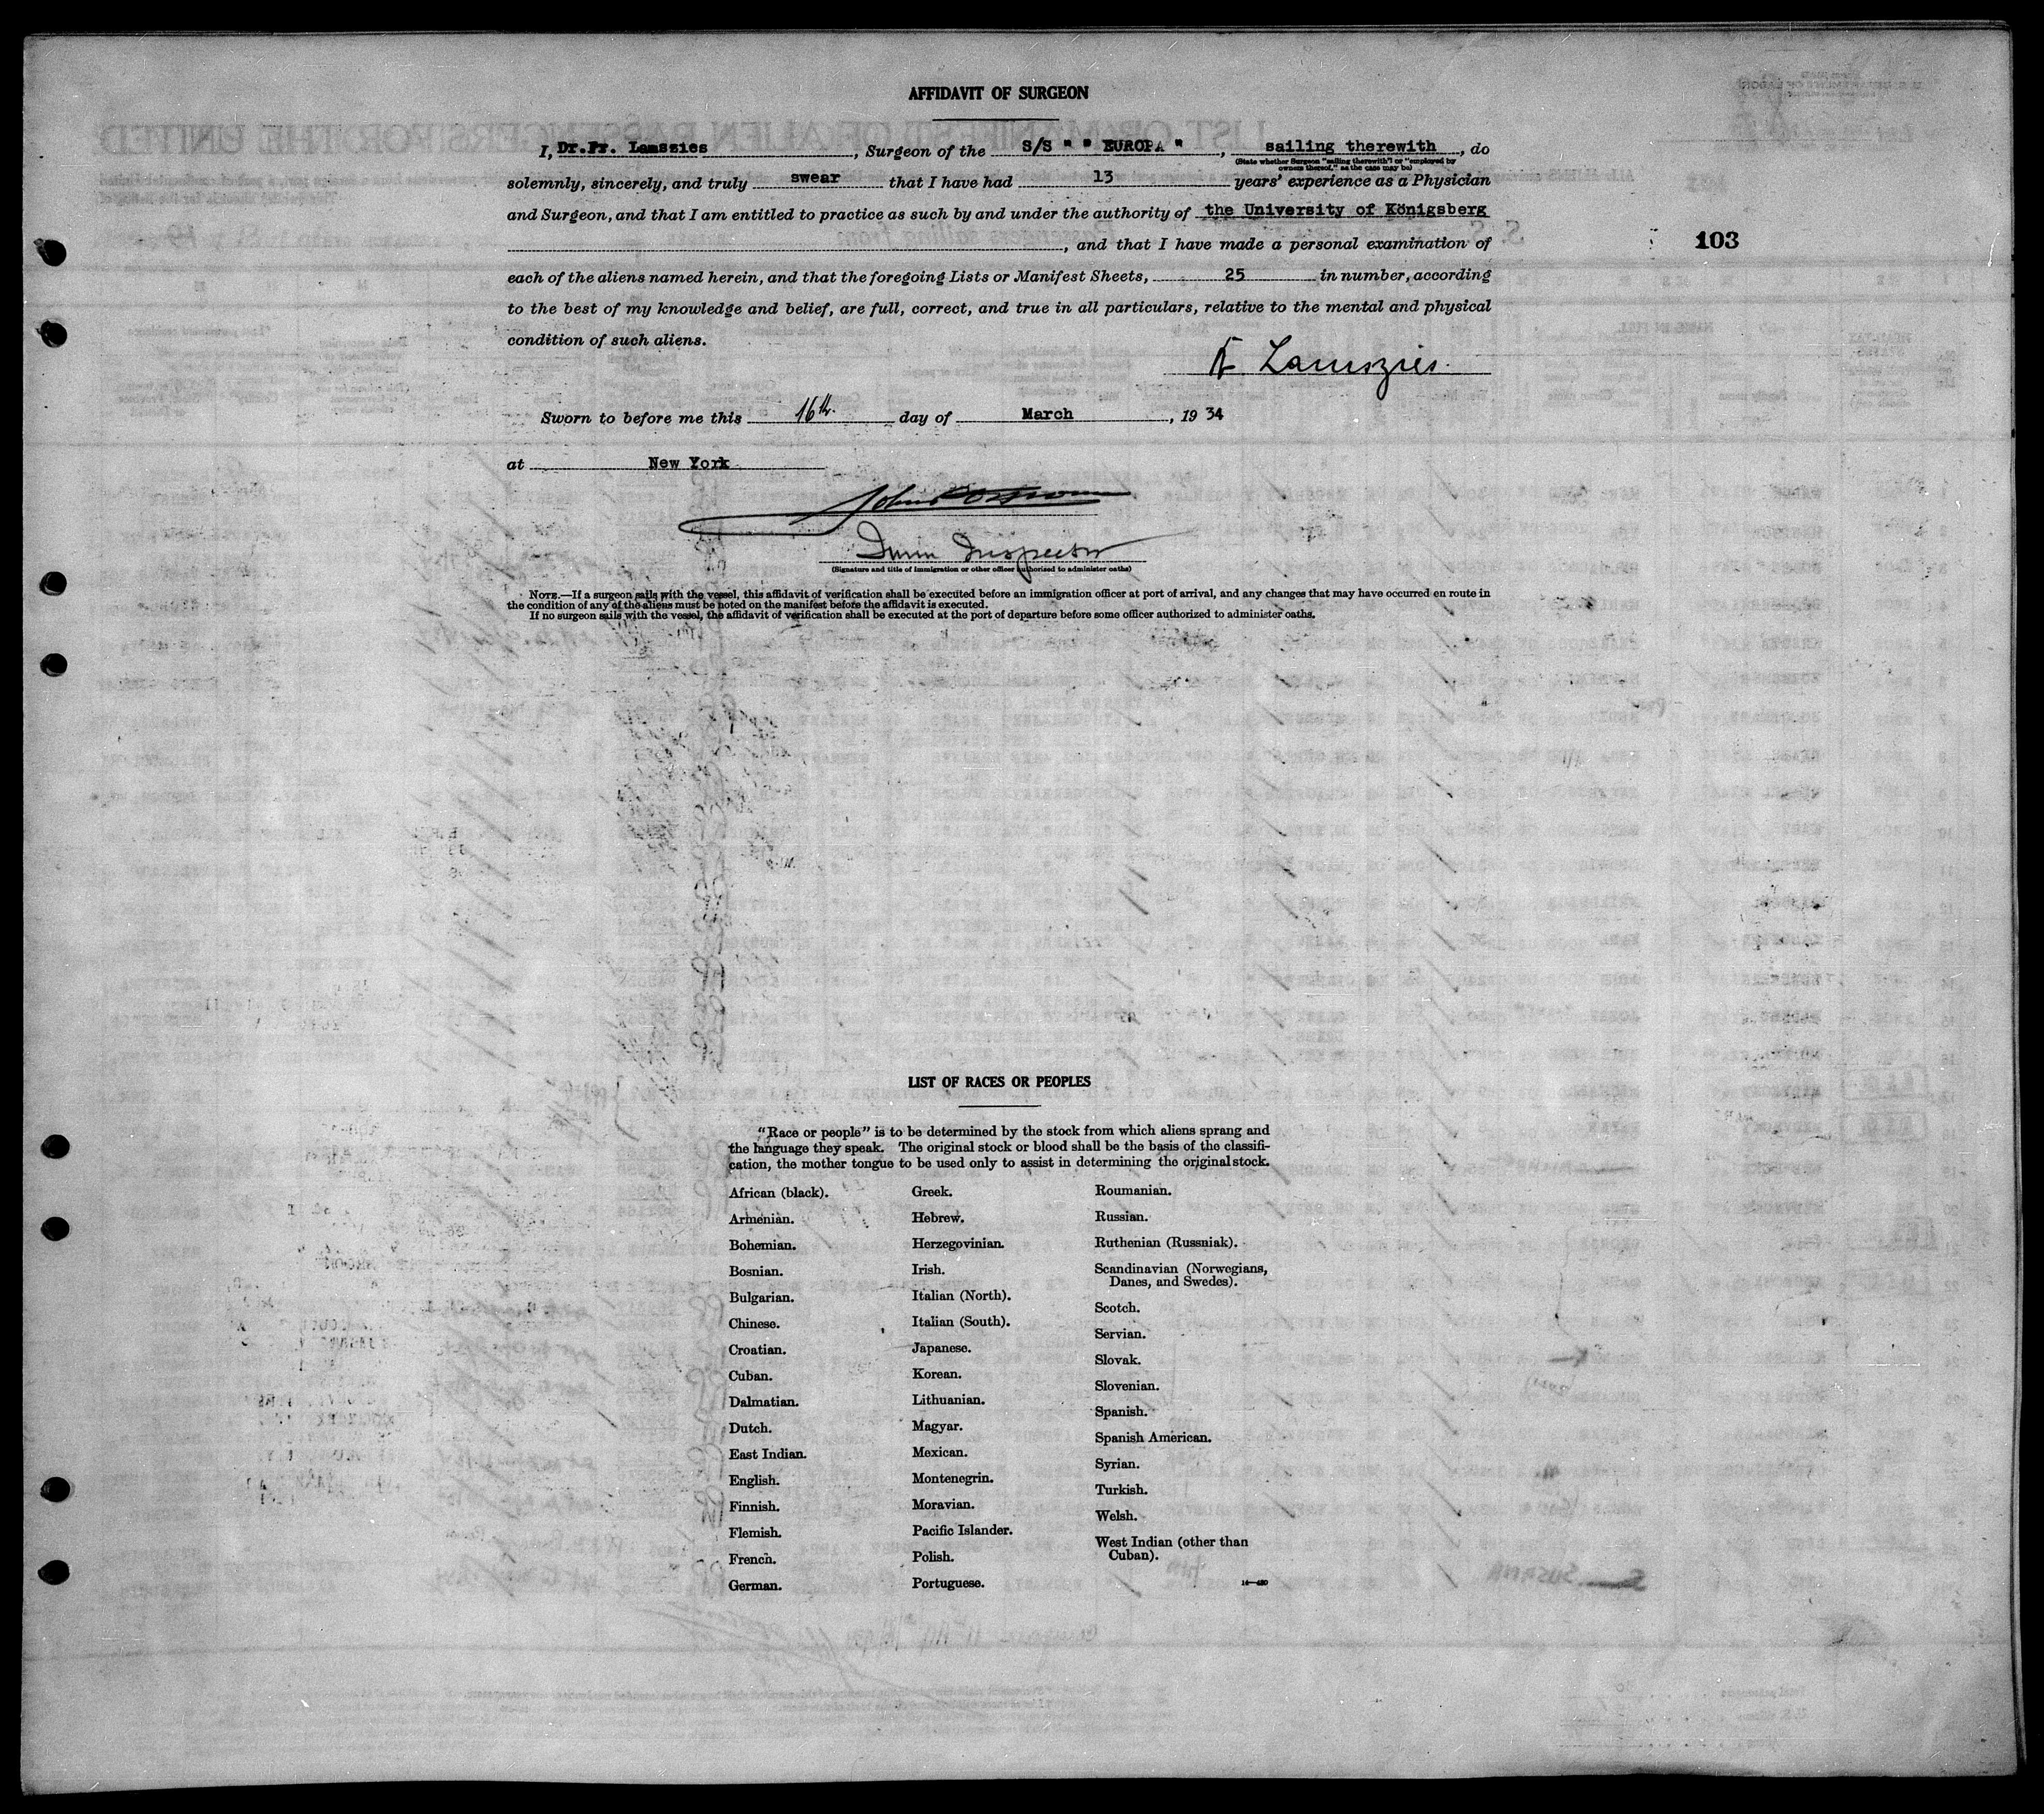 AFFIDAVIT OF SURGEON
I, Dr.Fr. Lamszies, Surgeon of the S/S " " EUROPA ", sailing therewith, do
(State whether Surgeon "sailing therewith" or "employed by
owners thereof," as the case may be)
solemnly, sincerely, and truly swear that I have had 13 years' experience as a Physician
and Surgeon, and that I am entitled to practice as such by and under the authority of the University of Königsberg
103
, and that I have made a personal examination of
each of the aliens named herein, and that the foregoing Lists or Manifest Sheets, 25 in number, according
to the best of my knowledge and belief, are full, correct, and true in all particulars, relative to the mental and physical
condition of such aliens.
Lamszies.
Sworn to before me this 16th. day of March, 1934
at New York
Imm Inspector
(Signature and title of immigration or other officer authorized to administer oaths)
NOTE.—If a surgeon sails with the vessel, this affidavit of verification shall be executed before an immigration officer at port of arrival, and any changes that may have occurred en route in
the condition of any of the aliens must be noted on the manifest before the affidavit is executed.
If no surgeon sails with the vessel, the affidavit of verification shall be executed at the port of departure before some officer authorized to administer oaths.
LIST OF RACES OR PEOPLES
"Race or people" is to be determined by the stock from which aliens sprang and
the language they speak. The original stock or blood shall be the basis of the classifi-
cation, the mother tongue to be used only to assist in determining the original stock.
African (black).
Armenian.
Bohemian.
Bosnian.
Bulgarian.
Chinese.
Croatian.
Cuban.
Dalmatian.
Dutch.
East Indian.
English.
Finnish.
Flemish.
French.
German.
Greek.
Hebrew.
Herzegovinian.
Irish.
Italian (North).
Italian (South).
Japanese.
Korean.
Lithuanian.
Magyar.
Mexican.
Montenegrin.
Moravian.
Pacific Islander.
Polish.
Portuguese.
Roumanian.
Russian.
Ruthenian (Russniak).
Scandinavian (Norwegians,
Danes, and Swedes).
Scotch.
Servian.
Slovak.
Slovenian.
Spanish.
Spanish American.
Syrian.
Turkish.
Welsh.
West Indian (other than
Cuban).